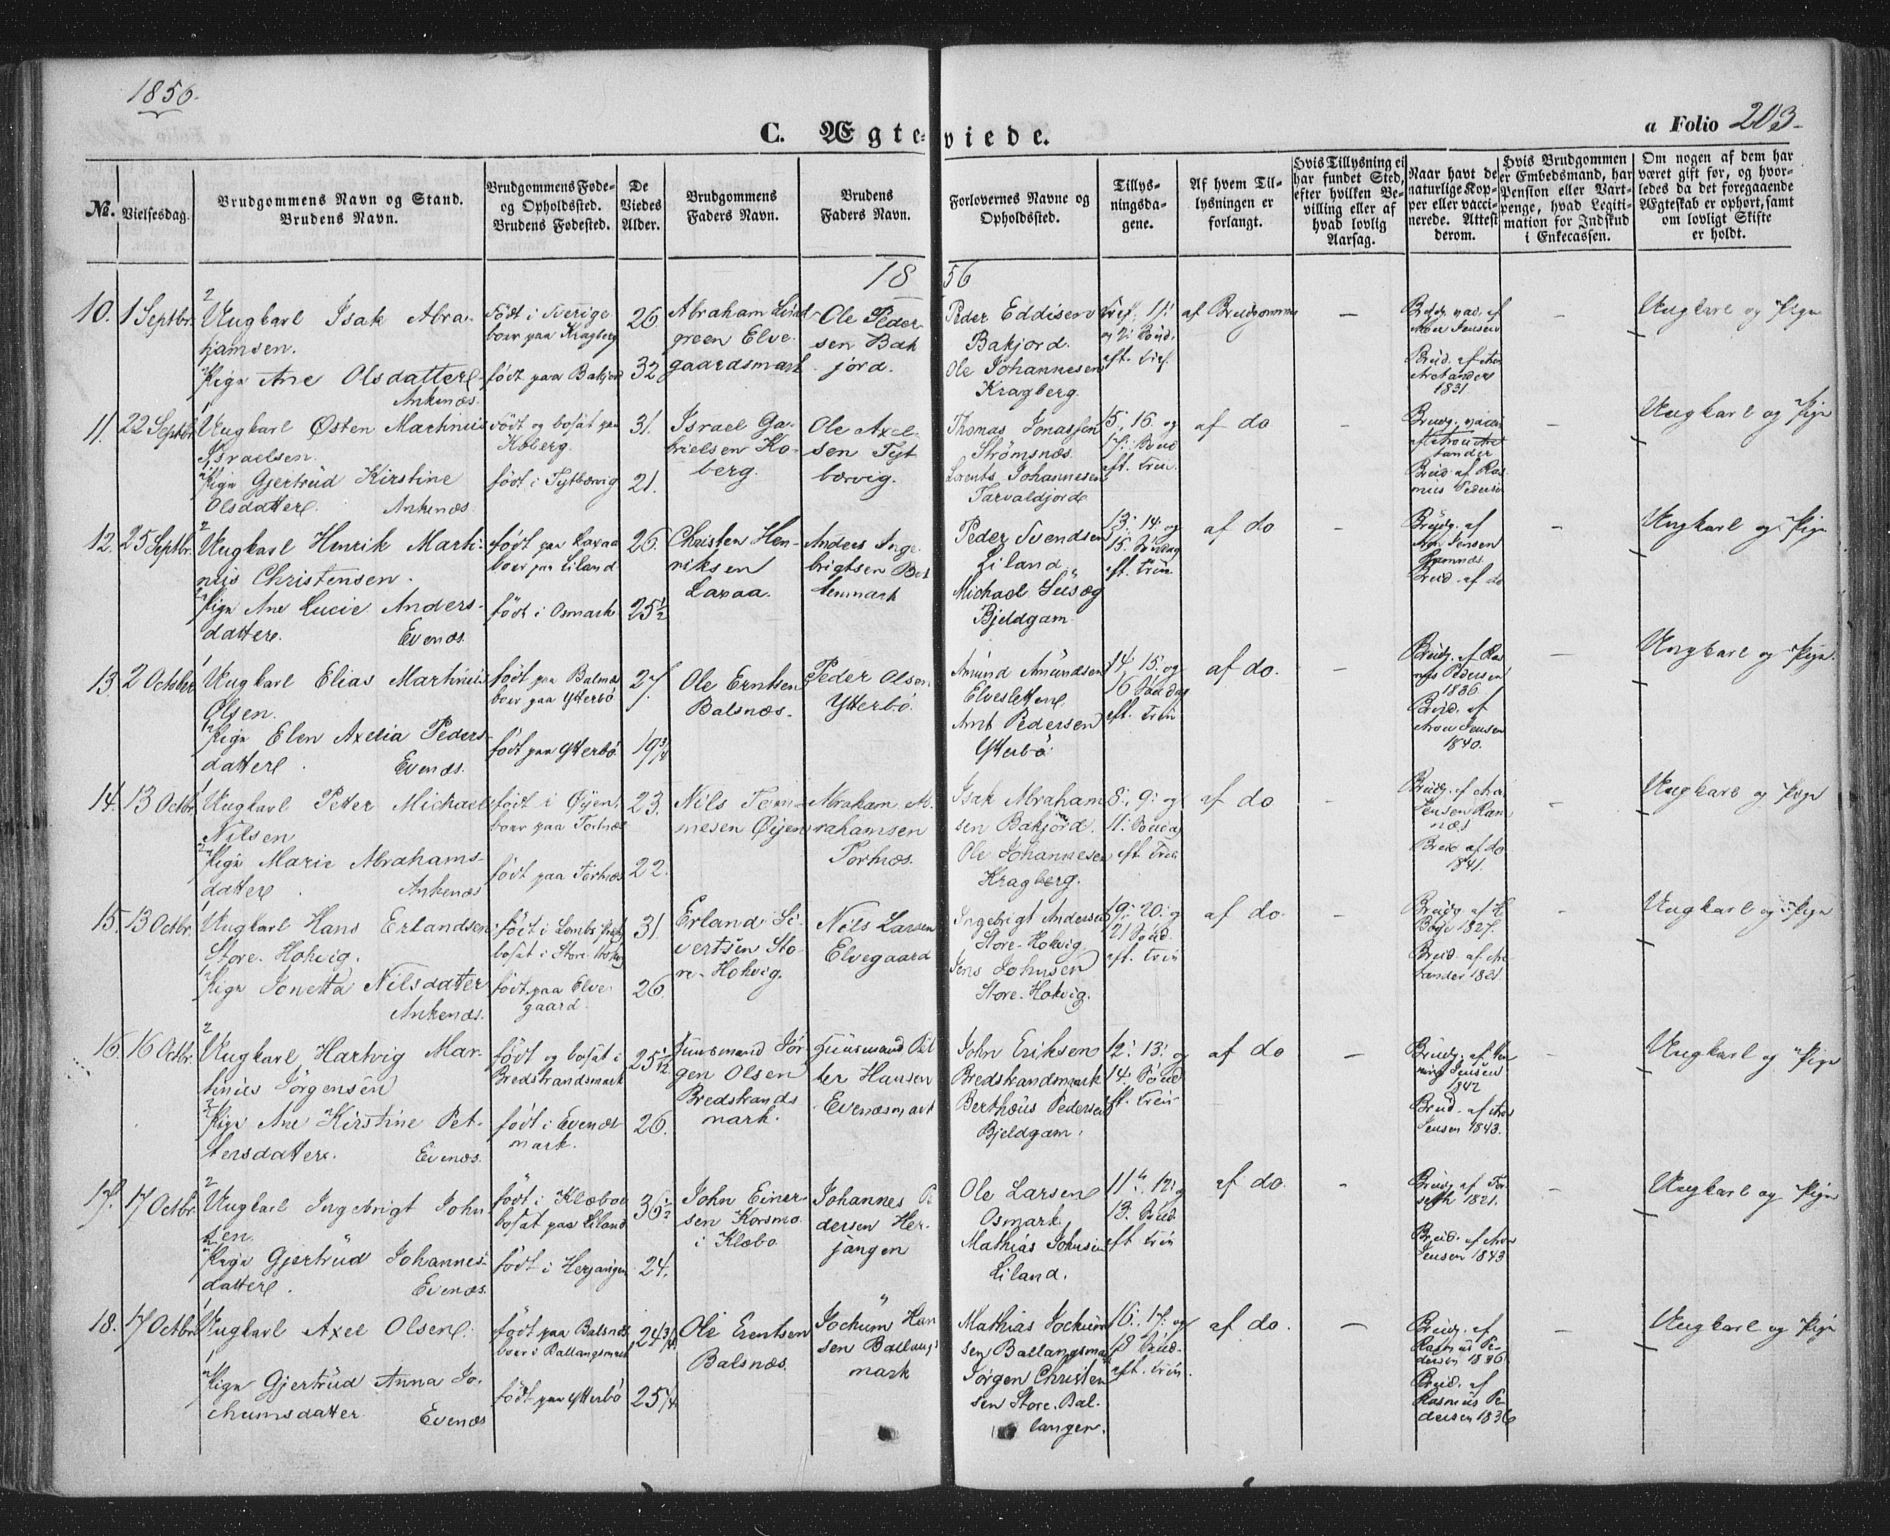 1856.
C. Ægteviede.
a Folio 203
№.
Vielsesdag.
Brudgommens Navn og Stand.
Brudens Navn.
Brudgommens Føde-
og Opholdssted.
Brudens Fødested.
De
Viedes
Alder.
Brudgommens
Faders Navn.
Brudens
Faders Navn.
Forlovernes Navne og
Opholdssted.
Tillys-
ningsda-
gene.
Af hvem Til-
lysningen er
forlangt.
Hvis Tillysning ei
har fundet Sted,
efter hvilken Be-
villing eller af
hvad lovlig
Aarsag.
Naar havt de
naturlige Kop-
per eller vacci-
nerede. Attest
derom.
Hvis Brudgommen
er Embedsmand, har
Pension eller Vart-
penge, hvad Legiti-
mation for Indskud
i Enkecassen.
Om nogen af dem har
været gift før, og hvor-
ledes da det foregaaende
Ægteskab er ophørt, samt
om lovligt Skifte
er holdt.
18 56
10. 1 Septbr.
Ungkarl Isak Abra-
hamsen.
Pige Ane Olsdatter
Ankenæs.
født i Sverige
boer paa Kragberg
født paa Bakjord
26
32
Abraham Lind
green Elve-
gaardsmark
Ole Peder-
sen Bak
jord.
Peder Eddisen
Bakjord.
Ole Johannesen
Kragberg.
af Brudgommen
—
1831.
Ungkarl og Pige
11. 22 Septbr.
Ungkarl Østen Martinus
Israelsen.
Pige Gjertrud Kirstine
Olsdatter. Ankenæs
født og bosat paa
Koberg.
født i Tytbærvig
31.
21.
Israel Ga-
brielsen Ko-
berg.
Ole Axel-
sen Tyt
bærvig.
Thomas Jonassen
Strømsnæs.
Lorents Johannesen
Tarvaldjord
15, 16. og
17. Sønd
eft. Trin.
af do
—
Brud. af Ras-
mus Pedersen
Ungkarl og Pige
12. 25 Septbr.
Ungkarl Henrik Marti-
nus Christensen.
Pige Ane Lucie Anders-
datter. Evenæs.
født paa Laxaa
boer paa Liland
født i Osmark
26.
25½
Christen Hen-
riksen
Laxaa.
Anders Inge
brigtsen Bot
nmark
Peder Svendsen
Liland.
Michael
Bjeldgam
13. 14. og
15. Søndag
eft. Trin
af do
—
Brudg. af
Jensen
Brud. af do
Ungkarl og Pige
13. 2 October
Ungkarl Elias Martinus
Olsen.
Pige Elen Axelia Peders-
datter. Evenæs.
født paa Balsnæs
boer paa Ytterbö
født paa Ytterbö
27.
19¾
Ole Erntsen
Balsnæs.
Peder Olsen
Ytterbö.
Amund Amundsen
Elvesletten
Arnt Pedersen
Ytterbö
14. 15. og
16 Søndag
eft. Trin
af do.
—
Brudg. af Ras-
mus Pedersen
1836
Brud. af
Jensen
1840.
Ungkarl og Pige.
14. 13 Octbr.
Ungkarl Petter Michael
Nilsen
Pige Marie Abrahams-
datter. Ankenæs
født i Øijen,
boer paa Tortnæs
født paa Tortnæs
23.
22.
Nils Tom-
mesen Øijen
Abraham Ab-
rahamsen
Tortnæs.
Isak Abraham
sen Bakjord.
Ole Johannesen
Kragberg.
8., 9. og
11. Søndag
eft Trin
af do
—
Brud af do
1841.
Ungkarl og Pige
15. 13 Octbr.
Ungkarl Hans Erlandsen
Store-Hokvig.
Pige Jonetta Nilsdatter
Ankenæs.
født i Lomb
bosat i Store Hokvig
født paa Elve-
gaard.
31.
26.
Erland Si-
vertsen Sto-
re-Hokvig.
Nils Larsen
Elvegaard
Ingebrigt Andersen
Store-Hokvig.
Jens Johnsen
Store-Hokvig.
19. 20. og
21 Sønd.
eft. Trin
af do.
—
1827.
1821
Ungkarl og Pige
16. 16 Octbr.
Ungkarl Hartvig Mar-
tinus Jörgensen
Pige Ane Kirstine Pet-
tersdatter. Evenæs.
født og bosat i
Bredstrandsmark
født i Evenæs
mark.
25½
26.
Huusmand Jör-
gen Olsen
Bredstrands
mark.
Huusmand Pet-
ter Hansen
Evenæsmark
John Eriksen
Bredstrandsmark
Bertheus Pedersen
Bjeldgam.
12. 13. og
14. Sønd
eft. Trin.
af do
—
Jensen
1842
Jensen 1843.
Ungkarl og Pige
17. 17 Octbr.
Ungkarl Ingebrigt John-
sen.
Pige Gjertrud Johannes-
datter. Evenæs.
født i Klæboe
bosat paa Liland
født i Herjangen
36½
24.
John Einer-
sen Korsmo
i Klæbo
Johannes Pe-
dersen Her-
jangen
Ole Larsen
Osmark.
Mathias Johnsen
Liland.
11, 12. og
13. Sønd
eft Trin
af do.
—
1821.
Jensen 1843
Ungkarl og Pige
18. 17 Octbr.
Ungkarl Axel Olsen.
Pige Gjertrud Anna Jo-
chumsdatter Evenæs
født paa Balsnæs
boer i Ballangsmark
født paa Ytterbö
24¾
25¼
Ole Erentsen
Balsnæs.
Jochum Han
sen Ballangs
mark
Mathias Jochum
sen Ballangsmark
Jørgen Christen
sen Store. Bal-
langen.
16. 17. og
18 Sønd-
eft. Trin.
af do.
—
Brudg. af
Rasmus Pe-
dersen 1836
Brud. af
Rasmus Pe-
dersen 1836
Ungkarl og Pige